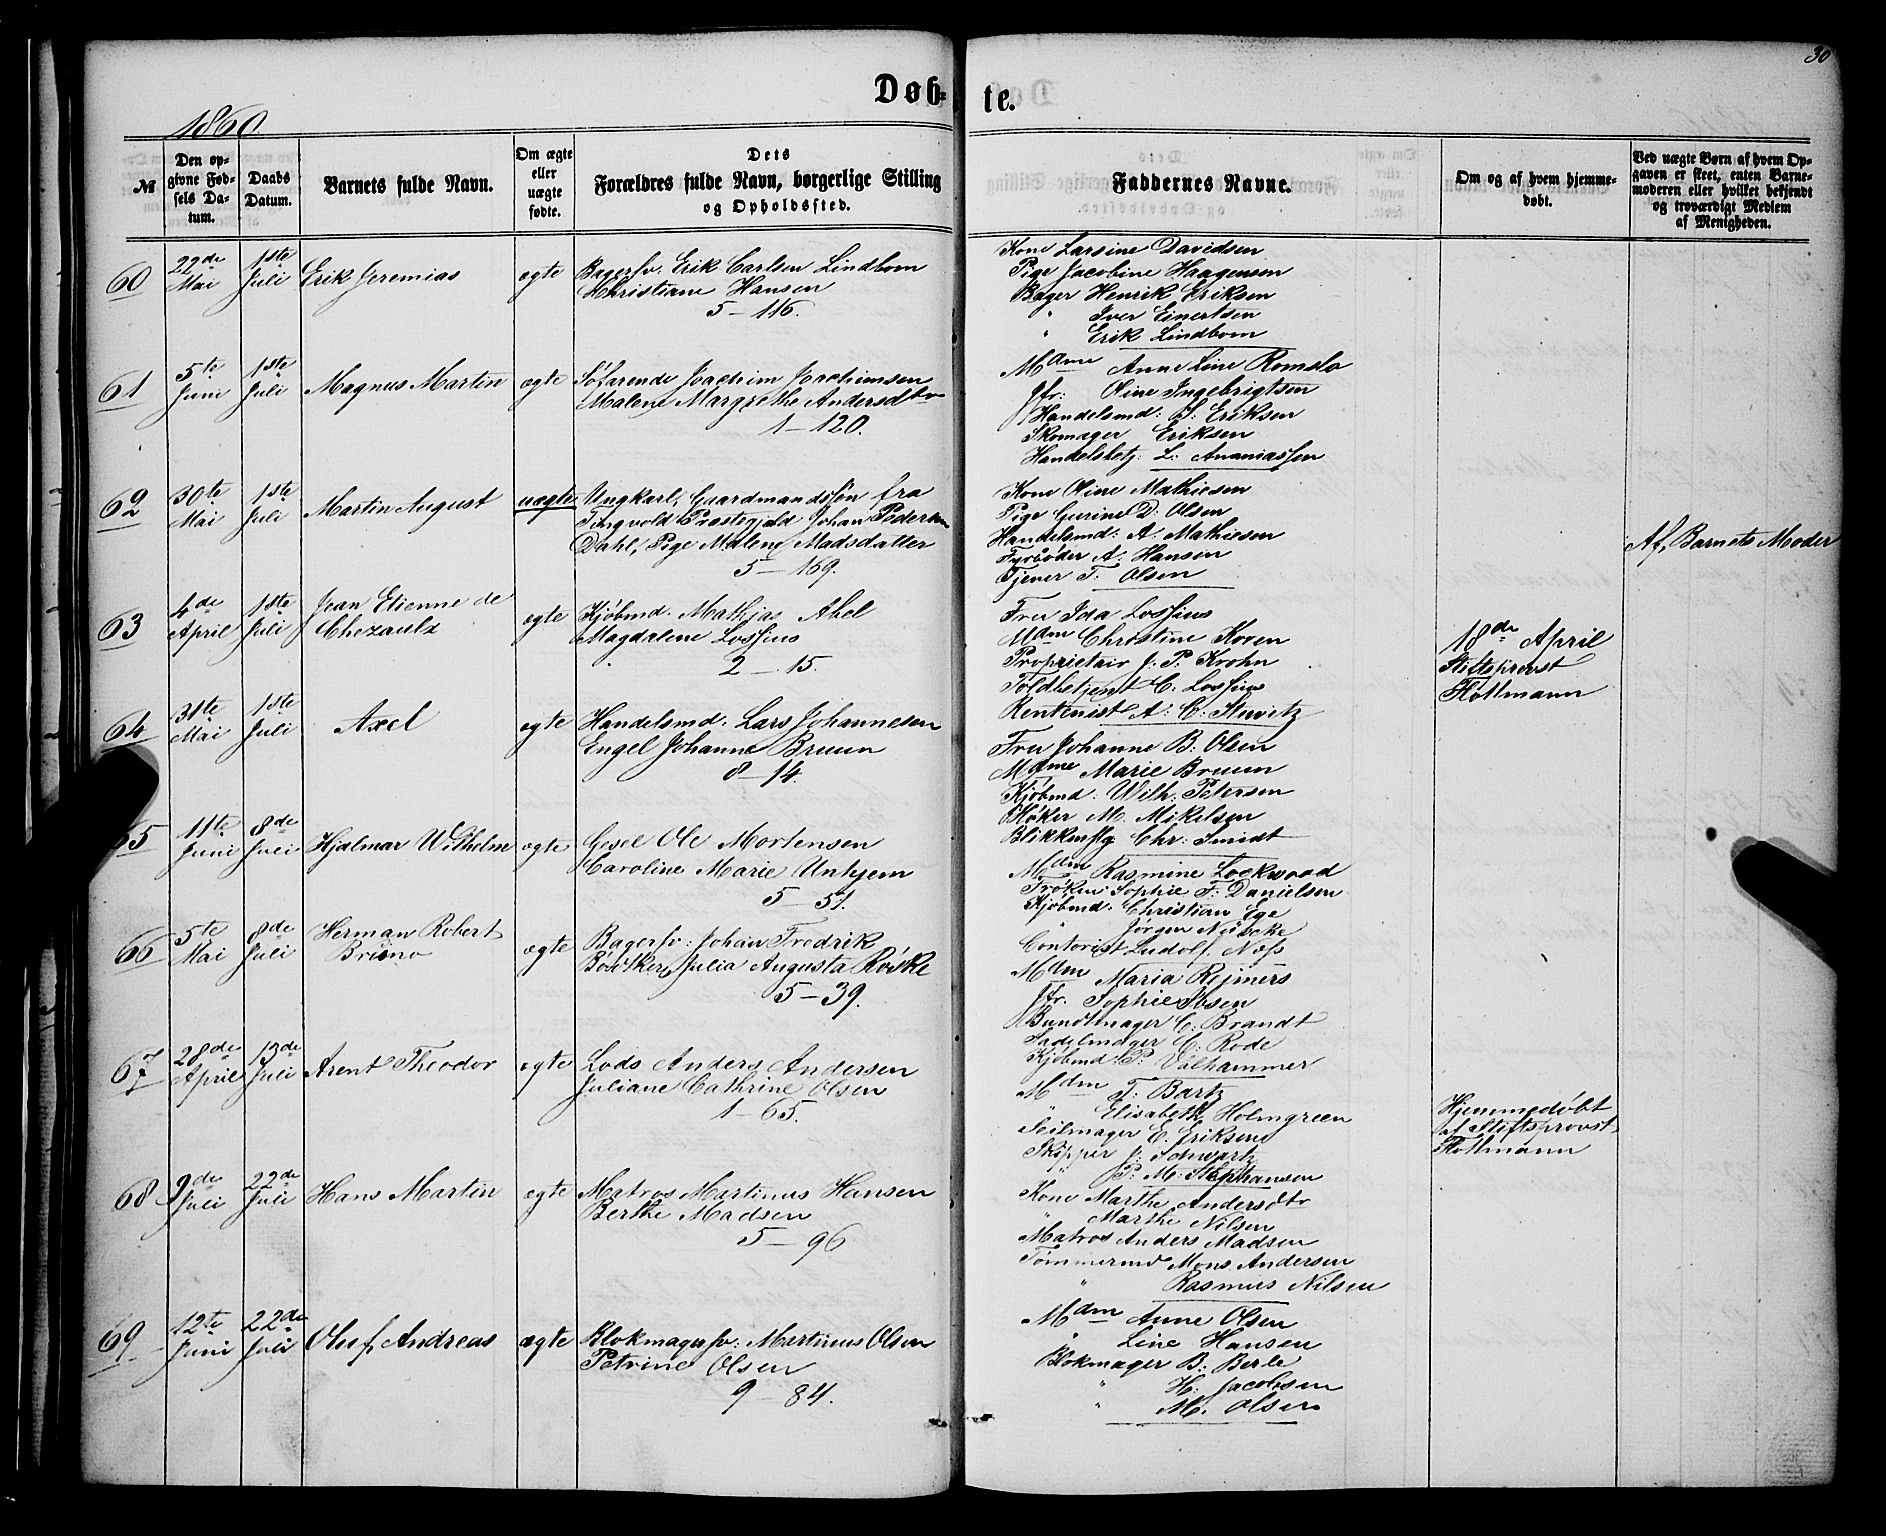 30
Døb- te.
1860
№
Den op-
givne Fød-
sels Da-
tum.
Daabs
Datum.
Barnets fulde Navn.
Om ægte
eller
uægte
fødte.
Dets
Forældres fulde Navn, borgerlige Stilling
og Opholdssted.
Faddernes Navne.
Om og af hvem hjemme-
døbt.
Ved uægte Børn af hvem Op-
gaven er skeet, enten Barne-
moderen eller hvilket bekjendt
og troværdigt Medlem
af Menigheden.
60
22de
Mai
1ste
Juli
Erik Jeremias
ægte
Bagersv. Erik Carlsen Lindbom
Christiane Hansen
5 - 116.
Kone Larsine Davidsen
Pige Jacobine Haagensen
Bager Henrik Eriksen
" Iver Einertsen
" Erik Lindbom
61
5te
Juni
1ste
Juli
Magnus Martin
ægte
Søfarende Joachim Joachimsen
Malene Margrethe Andersdtr
1 - 120.
Mdme Anne Line Romslo
Jfr: Oline Ingebrigtsen
Handelsmd: J: Eriksen
Skomager Eriksen
Handelsbetj: L: Ananiassen
62
30te
Mai
1ste
Juli
Martin August
uægte
Ungkarl, Gaardmandssøn fra
Tingvold Præstegjæld Johan Pedersen
Dahl, Pige Malene Madsdatter
5 - 169.
Kone Oline Mathiesen
Pige Gurine D: Olsen
Handelsmd: A. Mathiesen
Fyrbøder A. Hansen
Tjener T: Olsen
Af Barnets Moder
63
4de
April
1ste
Juli
Jean Etienne de
Chezaulx
ægte
Kjøbmd. Mathias Abel
Magdalene Lossius
2 - 15.
Fru Ida Lossius
Mdm Christine Koren
Proprietair J. P. Krohn
Toldbetjent C. Lossius
Rentenist A. C. Stuwitz
18de April
Stiftsprovst
Flottmann
64
31te
Mai
1ste
Juli
Axel
ægte
Handelsmd. Lars Johannesen
Engel Johanne Bruun
8 - 14.
Fru Johanne B: Olsen
Mdme Marie Bruun
Kjøbmd: Wilh: Petersen
Høker M. Mikelsen
Blikkenslg Chr: Smidt
65
11te
Juni
8de
Juli
Hjalmar Wilhelm
ægte
Gesel Ole Mortensen
Caroline Marie Unhjem
5 - 51.
Mdm Rasmine Lockwood
Frøken Sophie F: Danielsen
Kjøbmd. Christian Ege
Jørgen
Contorist Ludolf Næss
66
5te
Mai
8de
Juli
Herman Robert
Bruno
ægte
Bagersv: Johan Fredrik
Bødtker, Julia Augusta
5 - 39.
Mdm Maria Rejmers
Jfr. Sophie Ibsen
Bundtmager C: Brandt
Sadelmager C. Rode
Kjøbmd P. Valhammer
67
28de
April
13de
Juli
Arent Theodor
ægte
Lods Anders Andersen
Juliane Cathrine Olsen
1 - 65.
Mdm T. Bartz
" Elisabeth Holmgreen
Seilmager E. Eriksen
Skipper J: Schwartz
" P. M. Stephansen
Hjemmedøbt
af Stiftsprovst
Flottmann
68
9de
Juli
22de
Juli
Hans Martin
ægte
Matros Martinus Hansen
Berthe Madsen
5 - 96
Kone Marthe Andersdtr
" Marthe Nilsen
Matros Anders Madsen
Tømmermd Mons Andersen
" Rasmus Nilsen
69
12te
Juni
22de
Juli
Oluf Andreas
ægte
Blokmagersv: Martinus Olsen
Petrine Olsen
9 - 84.
Mdm Anne Olsen
" Line Hansen
Blokmager B: Berle
" H: Jacobsen
" M. Olsen